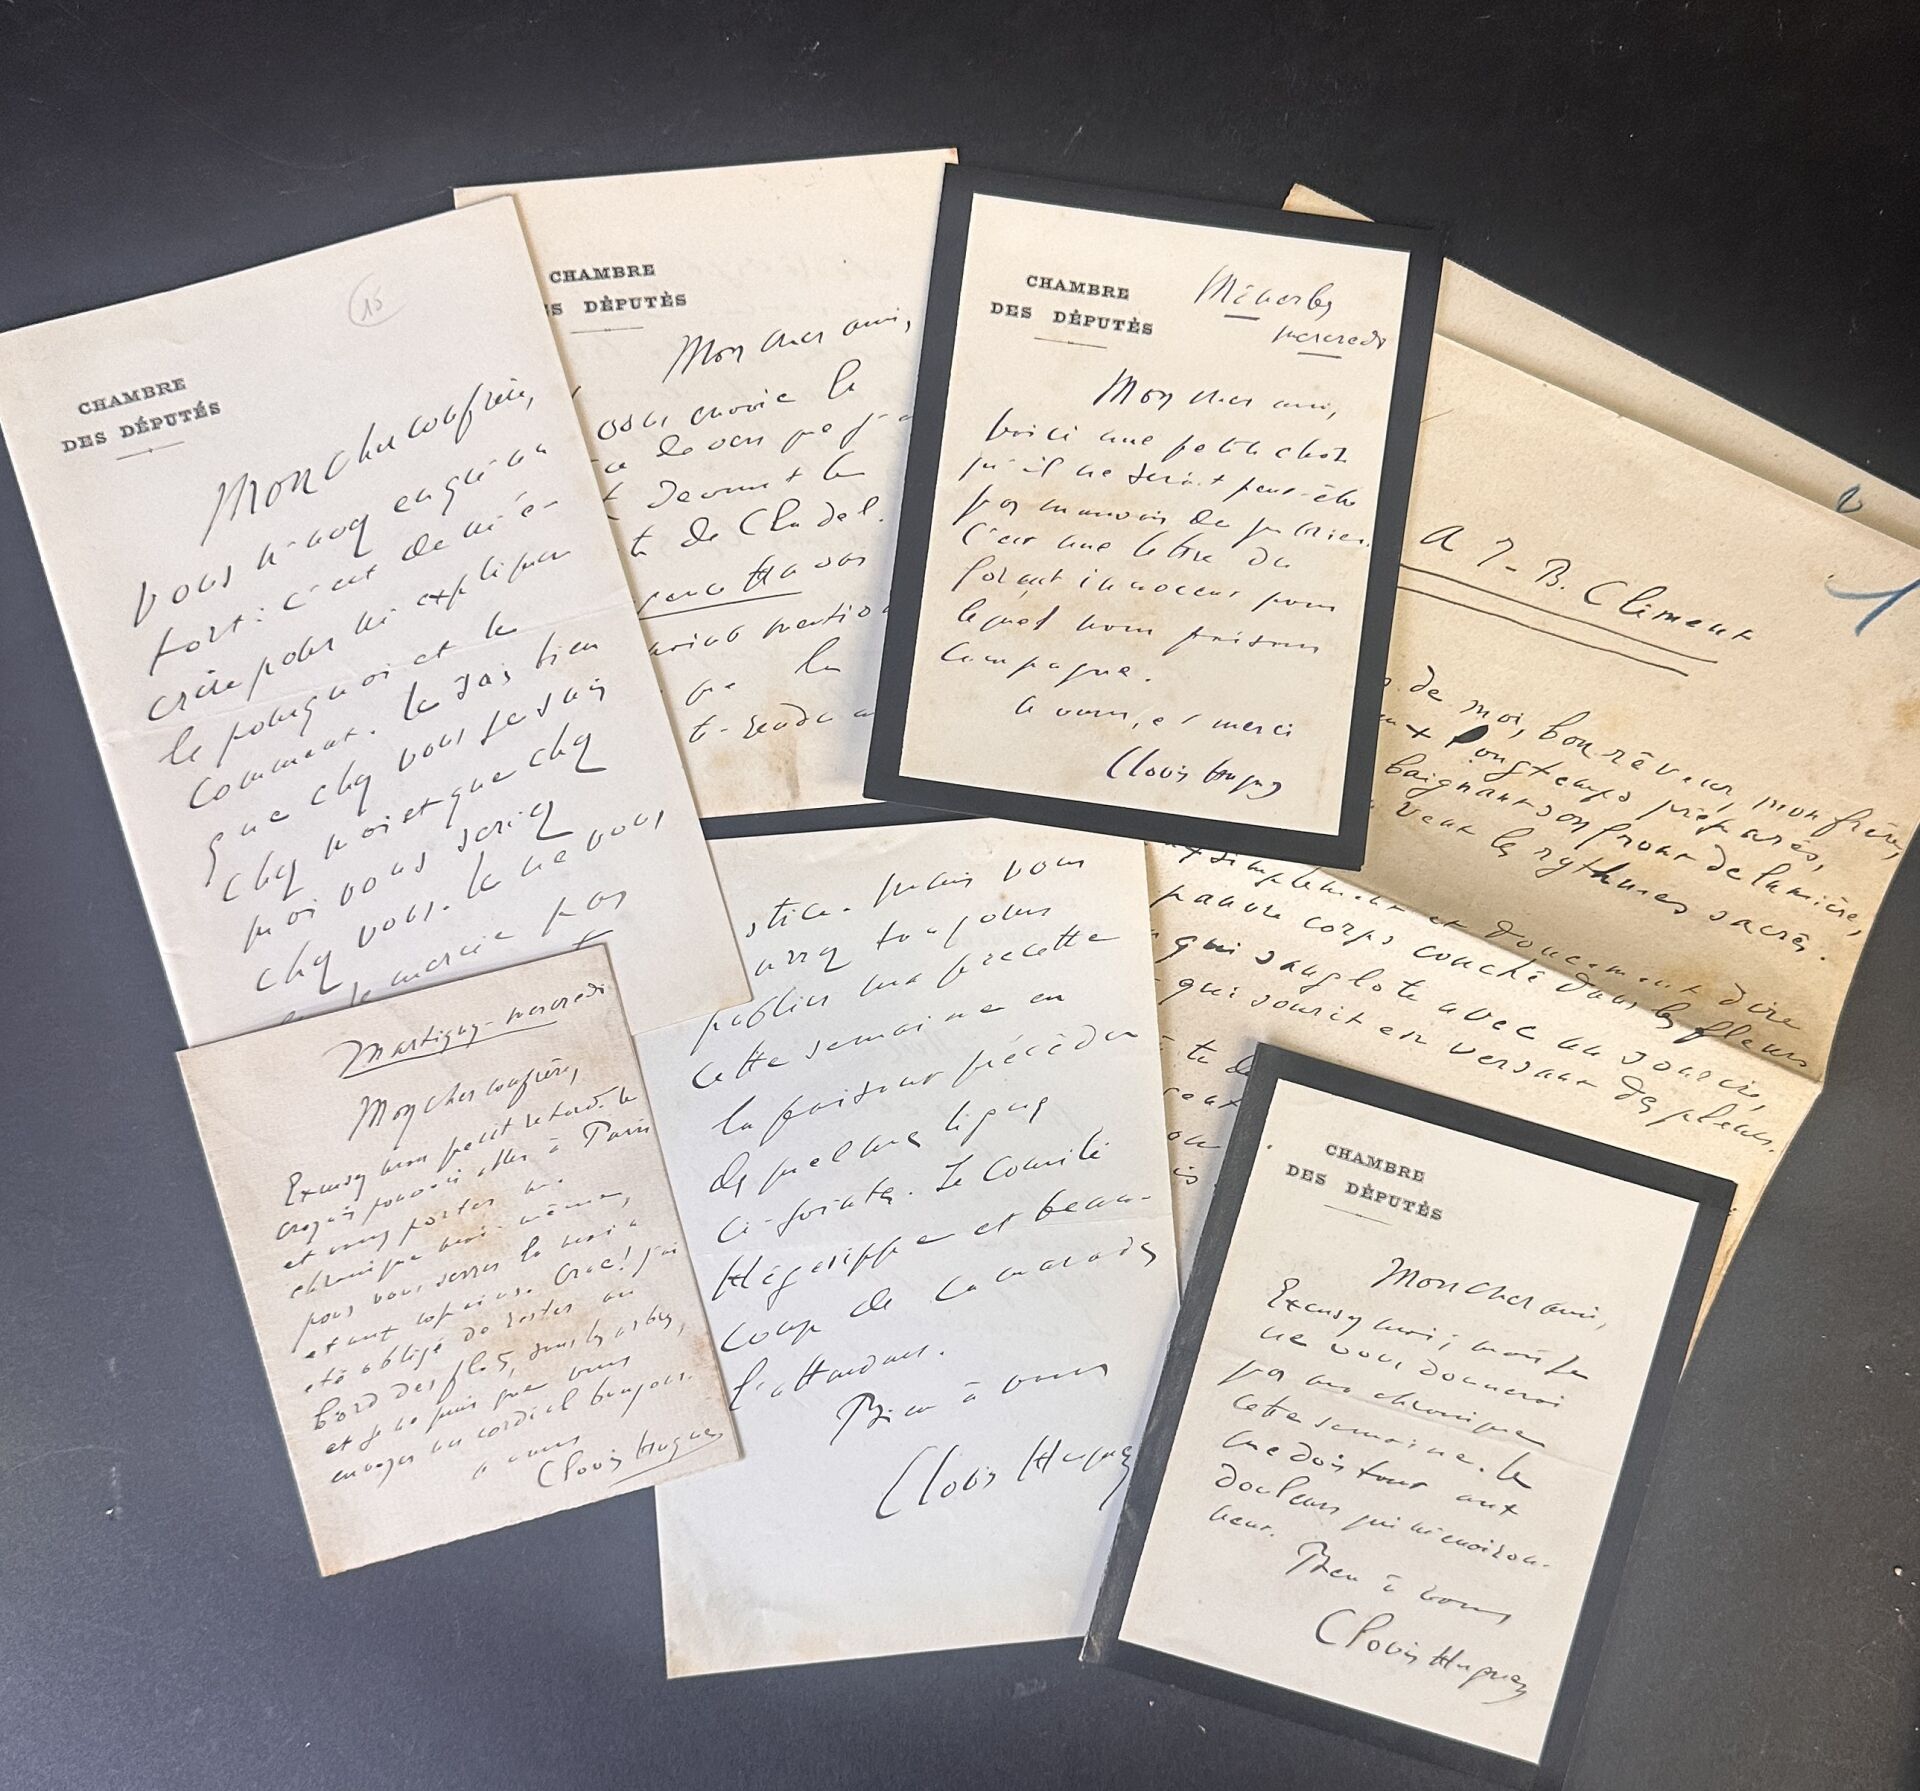 15
CHAMBRE
DES DÉPUTÉS
Mon cher confrère,
vous m'avez engueulé
fort : c'est de m'é-
crire pour m'expliquer
le pourquoi et le
comment. Je sais bien
que chez vous je suis
chez moi et que chez
moi vous seriez
chez vous. Je ne vous
remercie pas
CHAMBRE
ES DÉPUTÉS
Mon cher ami,
vous envoie la
de vers que j'ai
devant le
de Cladel.
Havas
mention
la
t-rendu
CHAMBRE
DES DÉPUTÉS
Ménerbes
mercredi
Mon cher ami,
Voici une petite chose
qu'il ne serait peut-être
pas mauvais de publier.
C'est une lettre du
forçat innocent pour
lequel nous faisons
campagne.
A vous, et merci
Clovis Hugues
A J-B. Clément
de moi, bon rêveur, mon frère,
longtemps préparés,
baignant son front de lumière,
veut les rythmes sacrés.
simplement et doucement dire
pauvre corps couché dans les fleurs
qui sanglote avec un sourire,
qui sourit en versant des pleurs.
Martigny - mercredi
Mon cher confrère,
Excusez mon petit retard. Je
croyais pouvoir aller à Paris
et vous porter ma
chronique moi-même,
pour vous serrer la main
et aux copains. Crac ! j'ai
été obligé de rester au
bord des flots, sous les arbres,
et je ne puis que vous
envoyer un cordial bonjour.
A vous
Clovis Hugues
stice. Mais vous
aurez toujours
publier ma piécette
cette semaine en
la faisant précéder
des quelques lignes
ci-jointes. Le Comité
Hégésippe et beau-
coup de camarades
l'attendent.
Bien à vous
Clovis Hugues
CHAMBRE
DES DÉPUTÉS
Mon cher ami,
Excusez-moi ; mais je
ne vous donnerai
pas ma chronique
cette semaine. Je
me dois tout aux
douleurs qui m'environ-
nent.
Bien à vous,
Clovis Hugues